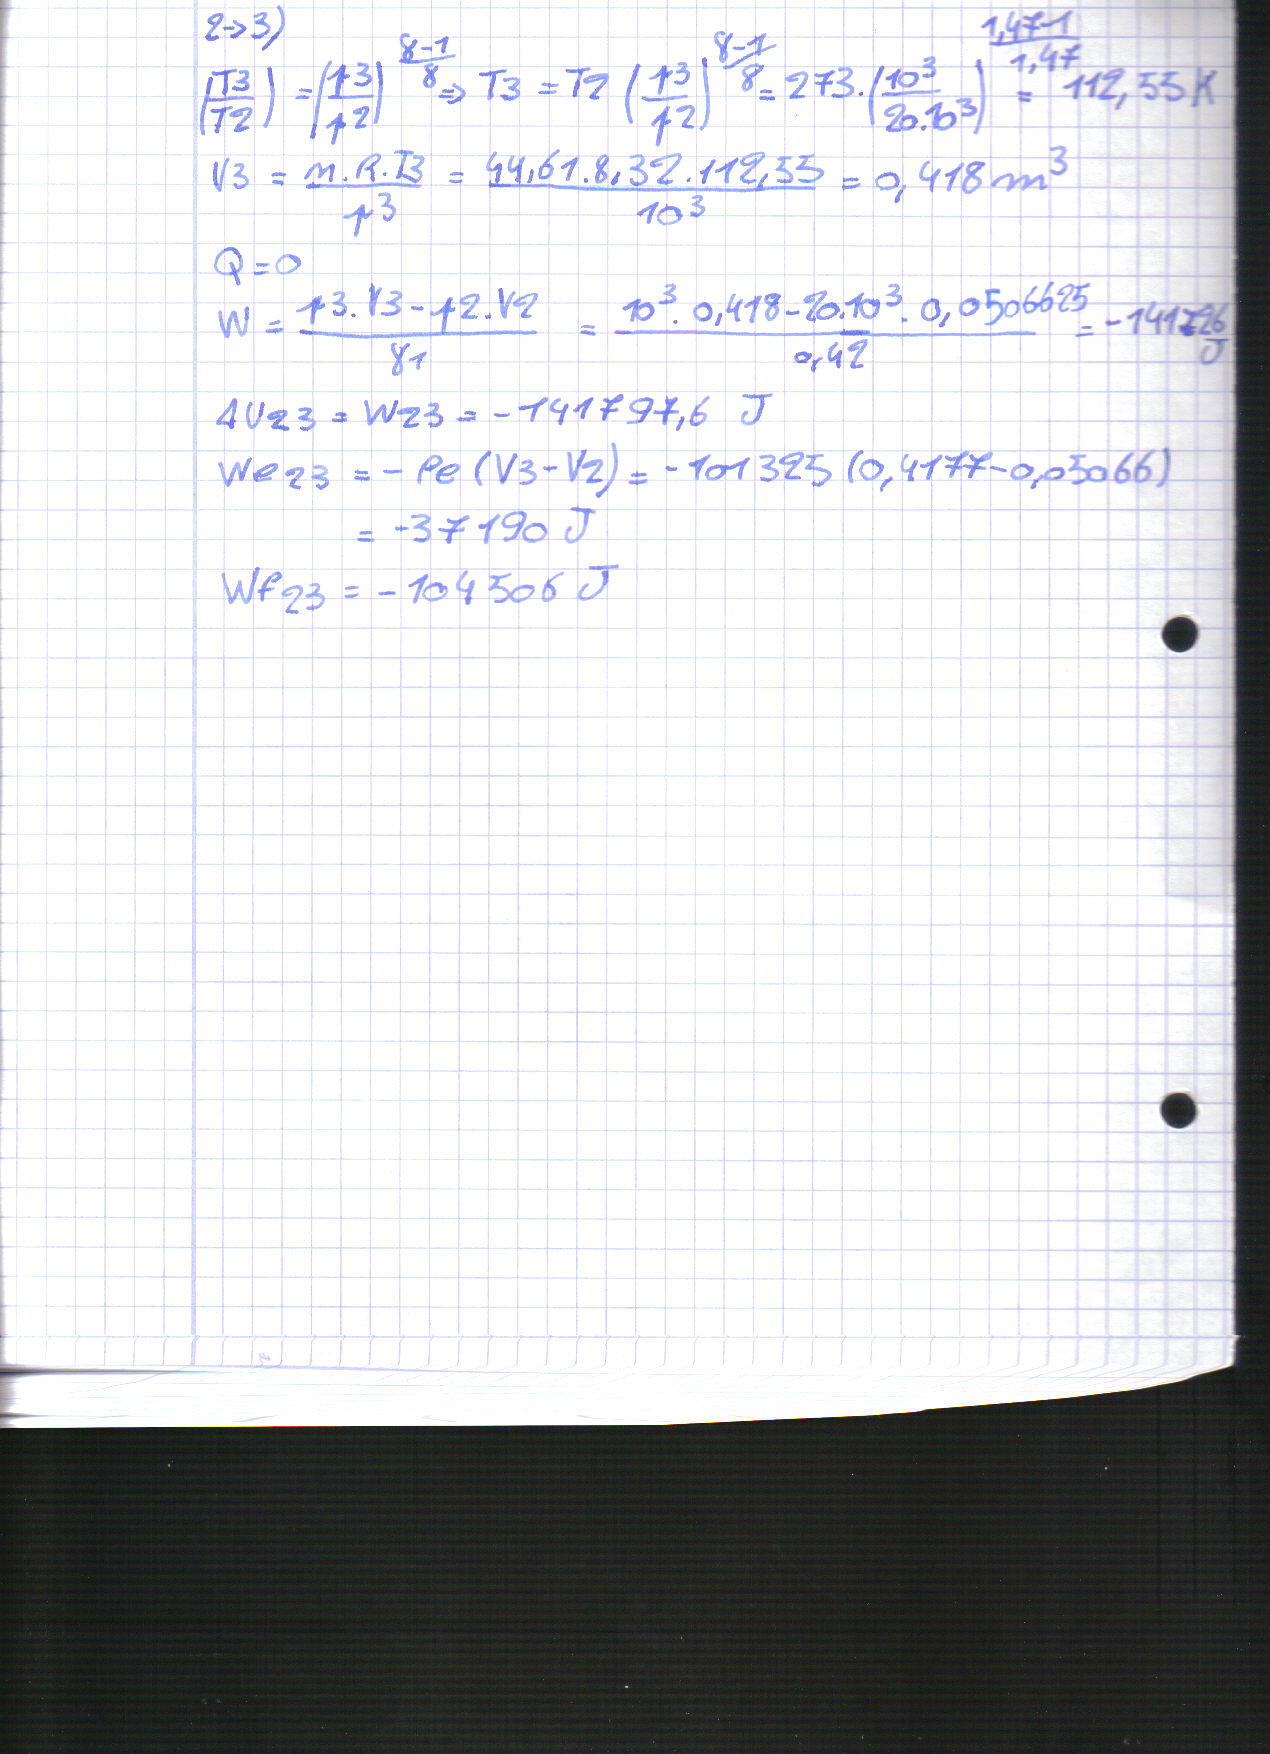 2→3)
(T3/T2) = (p3/p2)^(γ-1/γ) ⇒ T3 = T2 (p3/p2)^(γ-1/γ) = 273.(10³/20.10³)^(1,47-1/1,47) = 112,55 K
V3 = n.R.T3/p3 = 44,61.8,32.112,55/10³ = 0,418 m³
Q = 0
W = p3.V3-p2.V2/γ1 = 10³.0,418-20.10³.0,0506625/0,42 = J
ΔU23 = W23 = -141797,6 J
We23 = -Pe (V3-V2) = -101325 (0,4177-0,05066)
= -37190 J
Wf23 = -104506 J